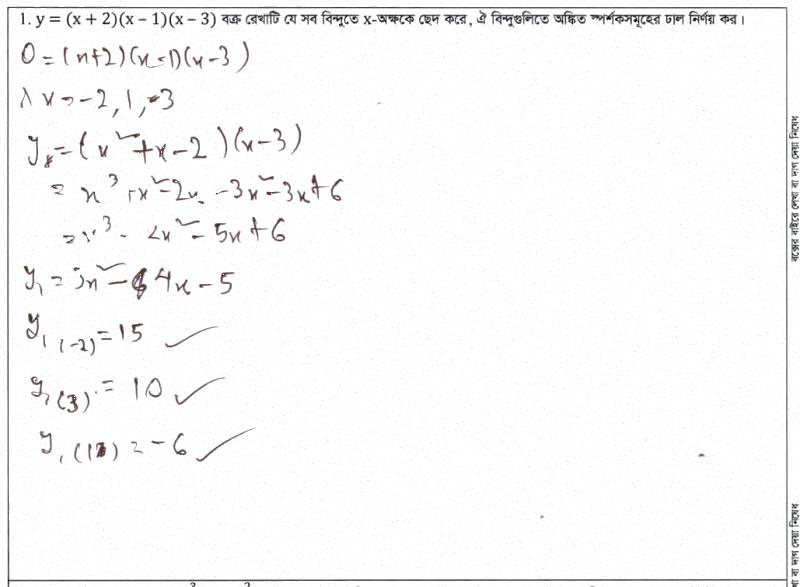 1. y = (x + 2)(x − 1)(x − 3) বক্র রেখাটি যে সব বিন্দুতে x-অক্ষকে ছেদ করে, ঐ বিন্দুগুলিতে অঙ্কিত স্পর্শকসমূহের ঢাল নির্ণয় কর।
0 = (x+2)(x-1)(x-3)
x = -2, 1, 3
y = (x² + x - 2)(x-3)
= x³ + x² - 2x - 3x² - 3x + 6
= x³ - 2x² - 5x + 6
y₁ = 3x² - 4x - 5
y₁(-2) = 15 ✓
y₁(3) = 10 ✓
y₁(1) = -6 ✓
বক্সের বাইরে লেখা বা দাগ দেয়া নিষেধ
বা দাগ দেয়া নিষেধ